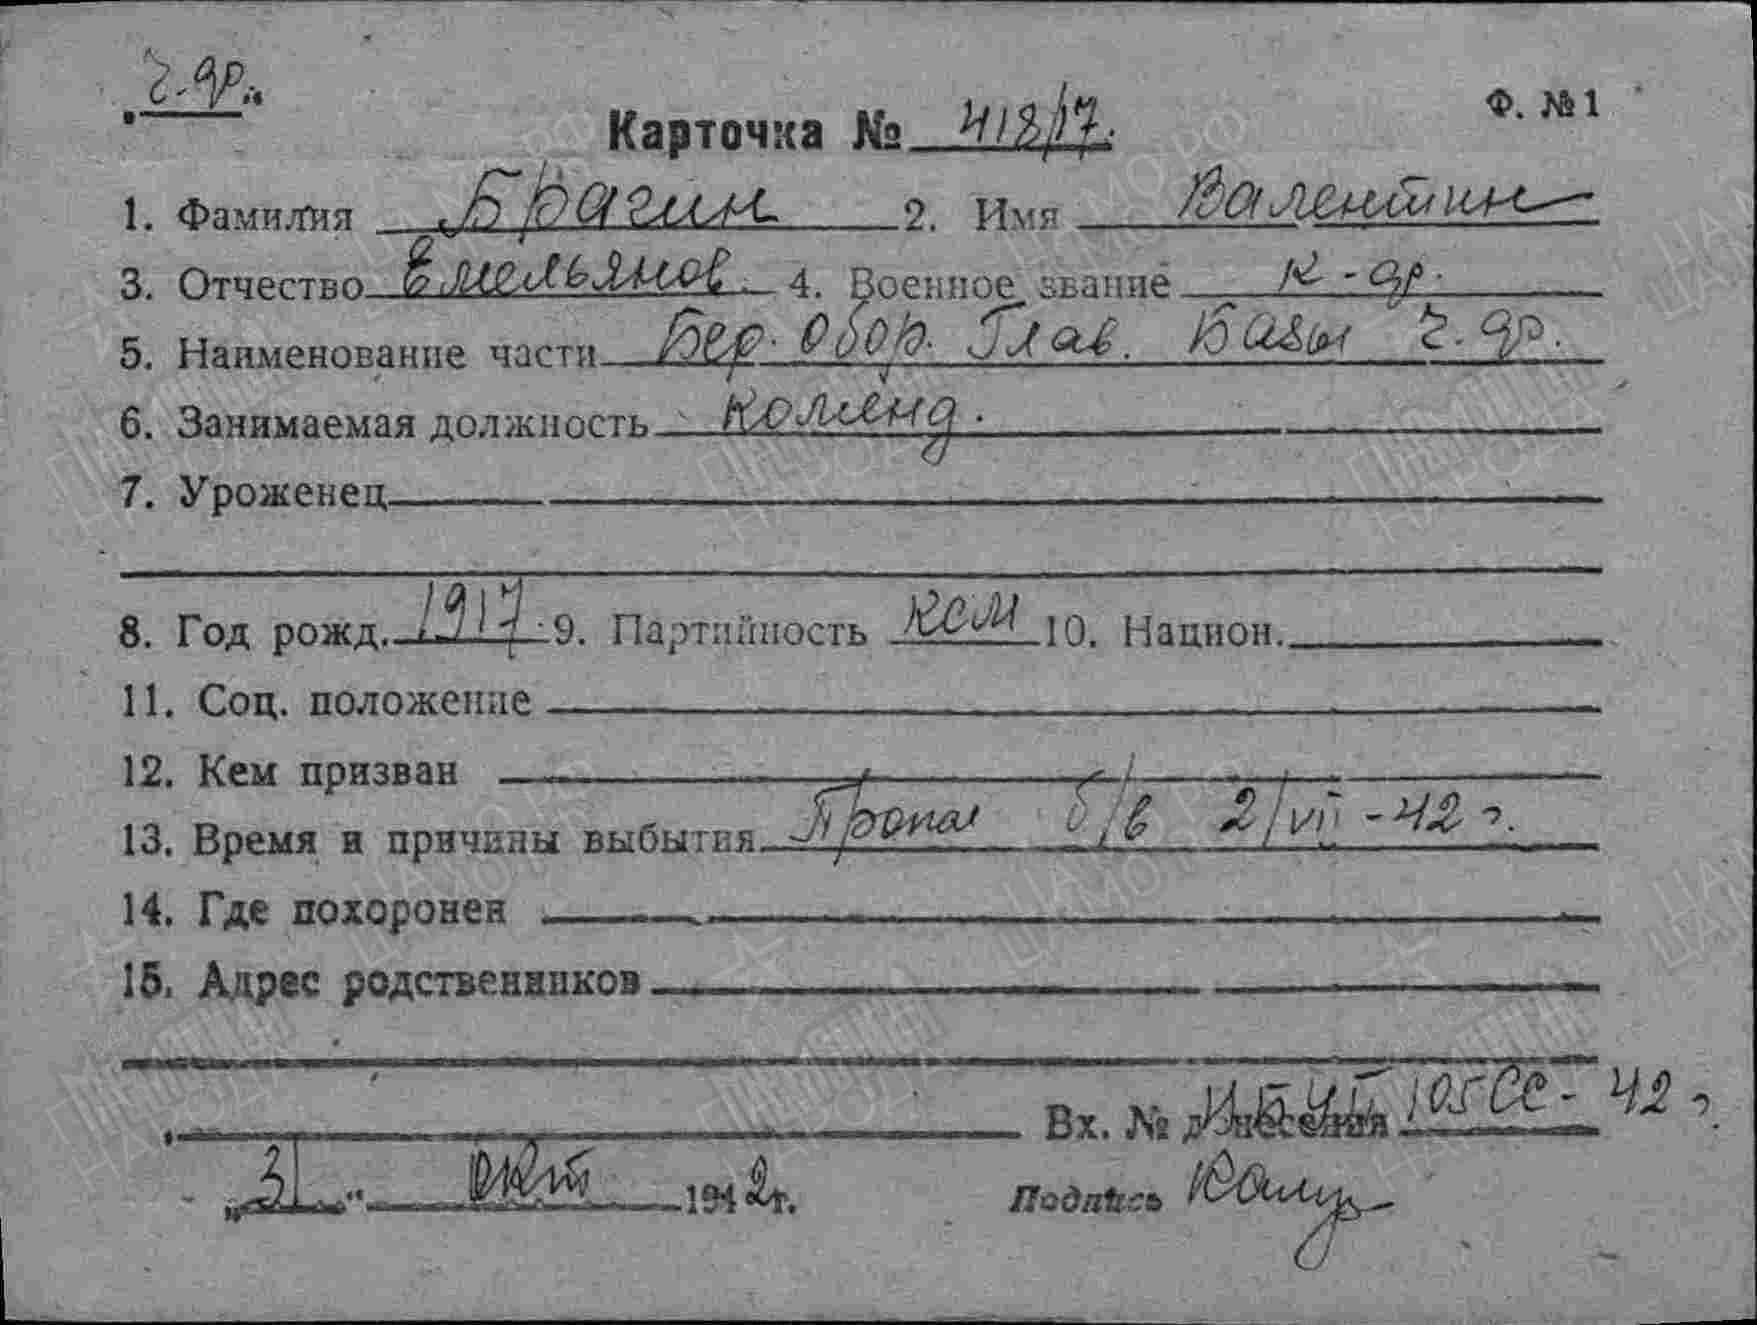 Ч.Ф.
Ф. №1
Карточка № 418/17.
1. Фамилия Брагин 2. Имя Валентин
3. Отчество Емельянов. 4. Военное звание к-др.
5. Наименование части Бер. Обор. Глав. Базы
6. Занимаемая должность коменд.
7. Уроженец
8. Год рожд. 1917 9. Партийность ксм 10. Национ.
11. Соц. положение
12. Кем призван
13. Время и причины выбытия Пропал б/в 2/VII-42 г.
14. Где похоронен
15. Адрес родственников
Вх. № донесения 105сс-42 г.
„31“ окт 1942г.
Подпись